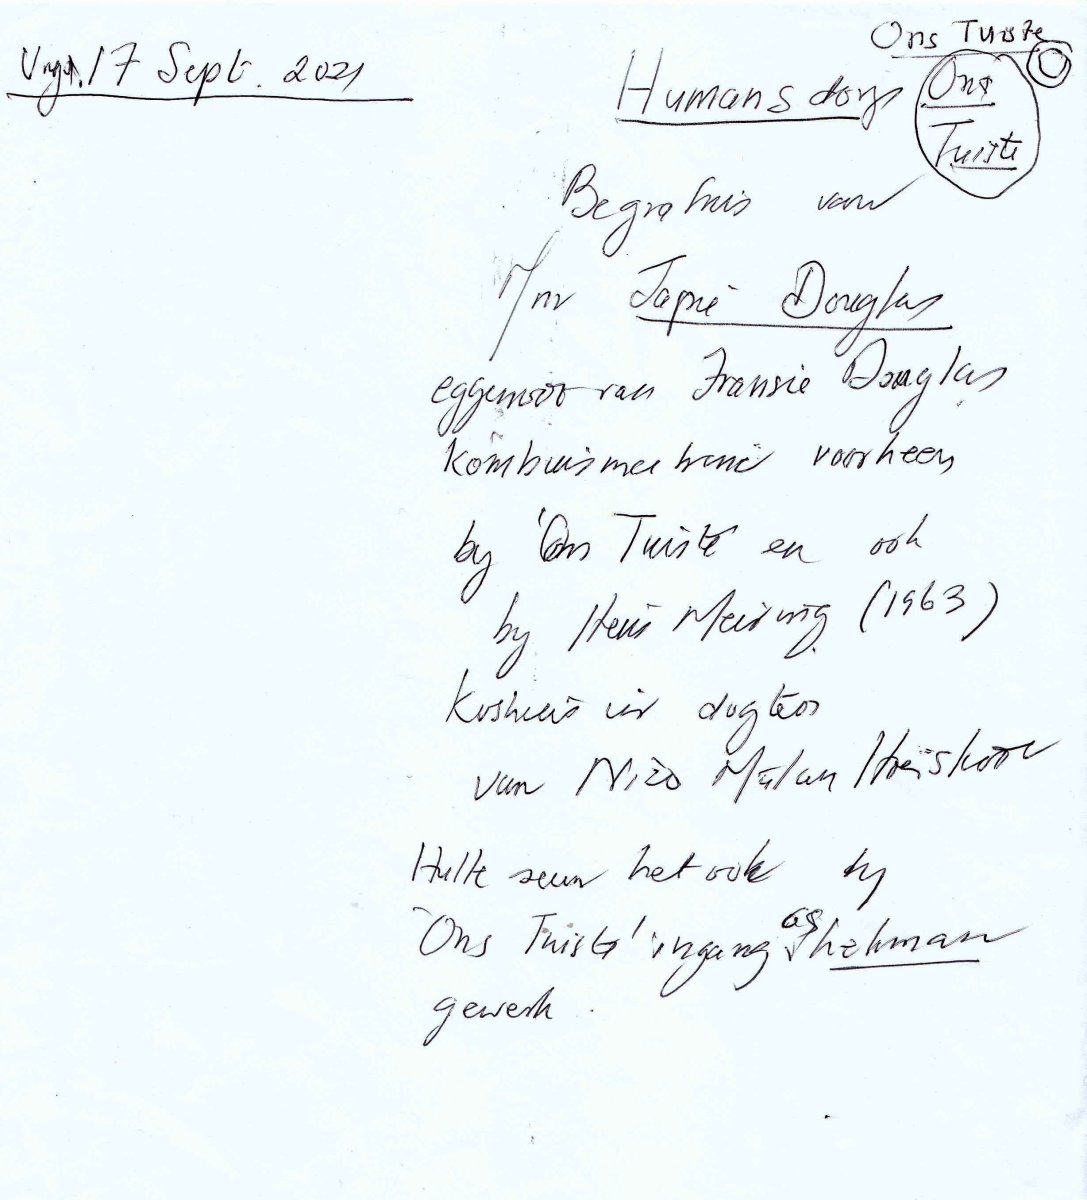 Ons Tuiste
Vryd. 17 Sept. 2021
Humansdorp
Ons
Tuiste
Begrafnis van
Mnr Japie Douglas
eggenoot van Fransie Douglas
Kombuis voorheen
by 'Ons Tuiste en ook
by Huis Meiring (1963)
Koshuis vir dogters
van Nico Malan Hoërskool
Hulle seun het ook by
'Ons Tuiste' ingang as hekman
gewerk.